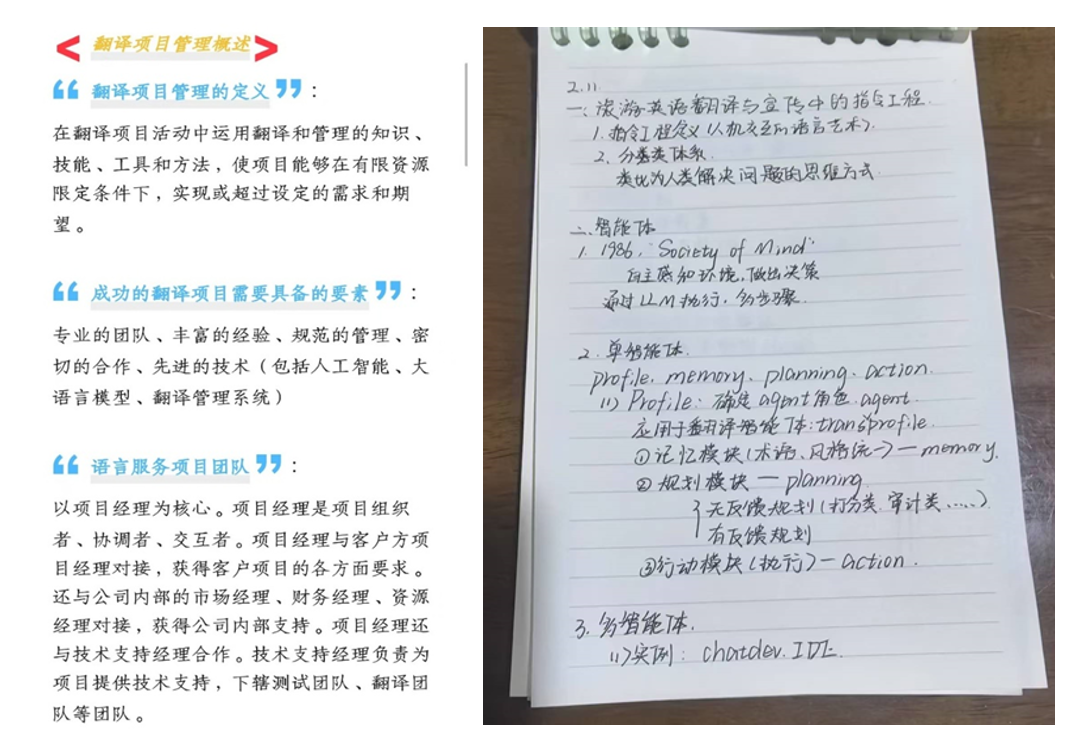 < 翻译项目管理概述 >
“ 翻译项目管理的定义 ” ：
在翻译项目活动中运用翻译和管理的知识、
技能、工具和方法，使项目能够在有限资源
限定条件下，实现或超过设定的需求和期
望。
“ 成功的翻译项目需要具备的要素 ” ：
专业的团队、丰富的经验、规范的管理、密
切的合作、先进的技术（包括人工智能、大
语言模型、翻译管理系统）
“ 语言服务项目团队 ” ：
以项目经理为核心。项目经理是项目组织
者、协调者、交互者。项目经理与客户方项
目经理对接，获得客户项目的各方面要求。
还与公司内部的市场经理、财务经理、资源
经理对接，获得公司内部支持。项目经理还
与技术支持经理合作。技术支持经理负责为
项目提供技术支持，下辖测试团队、翻译团
队等团队。
2.11.
一：旅游英语翻译与宣传中的指令工程.
1. 指令工程定义（人机交互的语言艺术）.
2. 分类体系.
类比为人类解决问题的思维方式
二、智能体
1. 1986, "Society of Mind"
自主感知环境，做出决策
通过LLM执行，多步骤.
2. 单智能体.
profile. memory. planning. action.
(1) Profile：确定agent角色.agent.
应用于翻译智能体:transprofile.
①记忆模块(术语、风格统一)—memory.
② 规划模块 — planning
{ 无反馈规划(打分类.审计类......)
有反馈规划
③行动模块(执行)— action.
3. 多智能体.
(1)实例：chatdev.IDE.